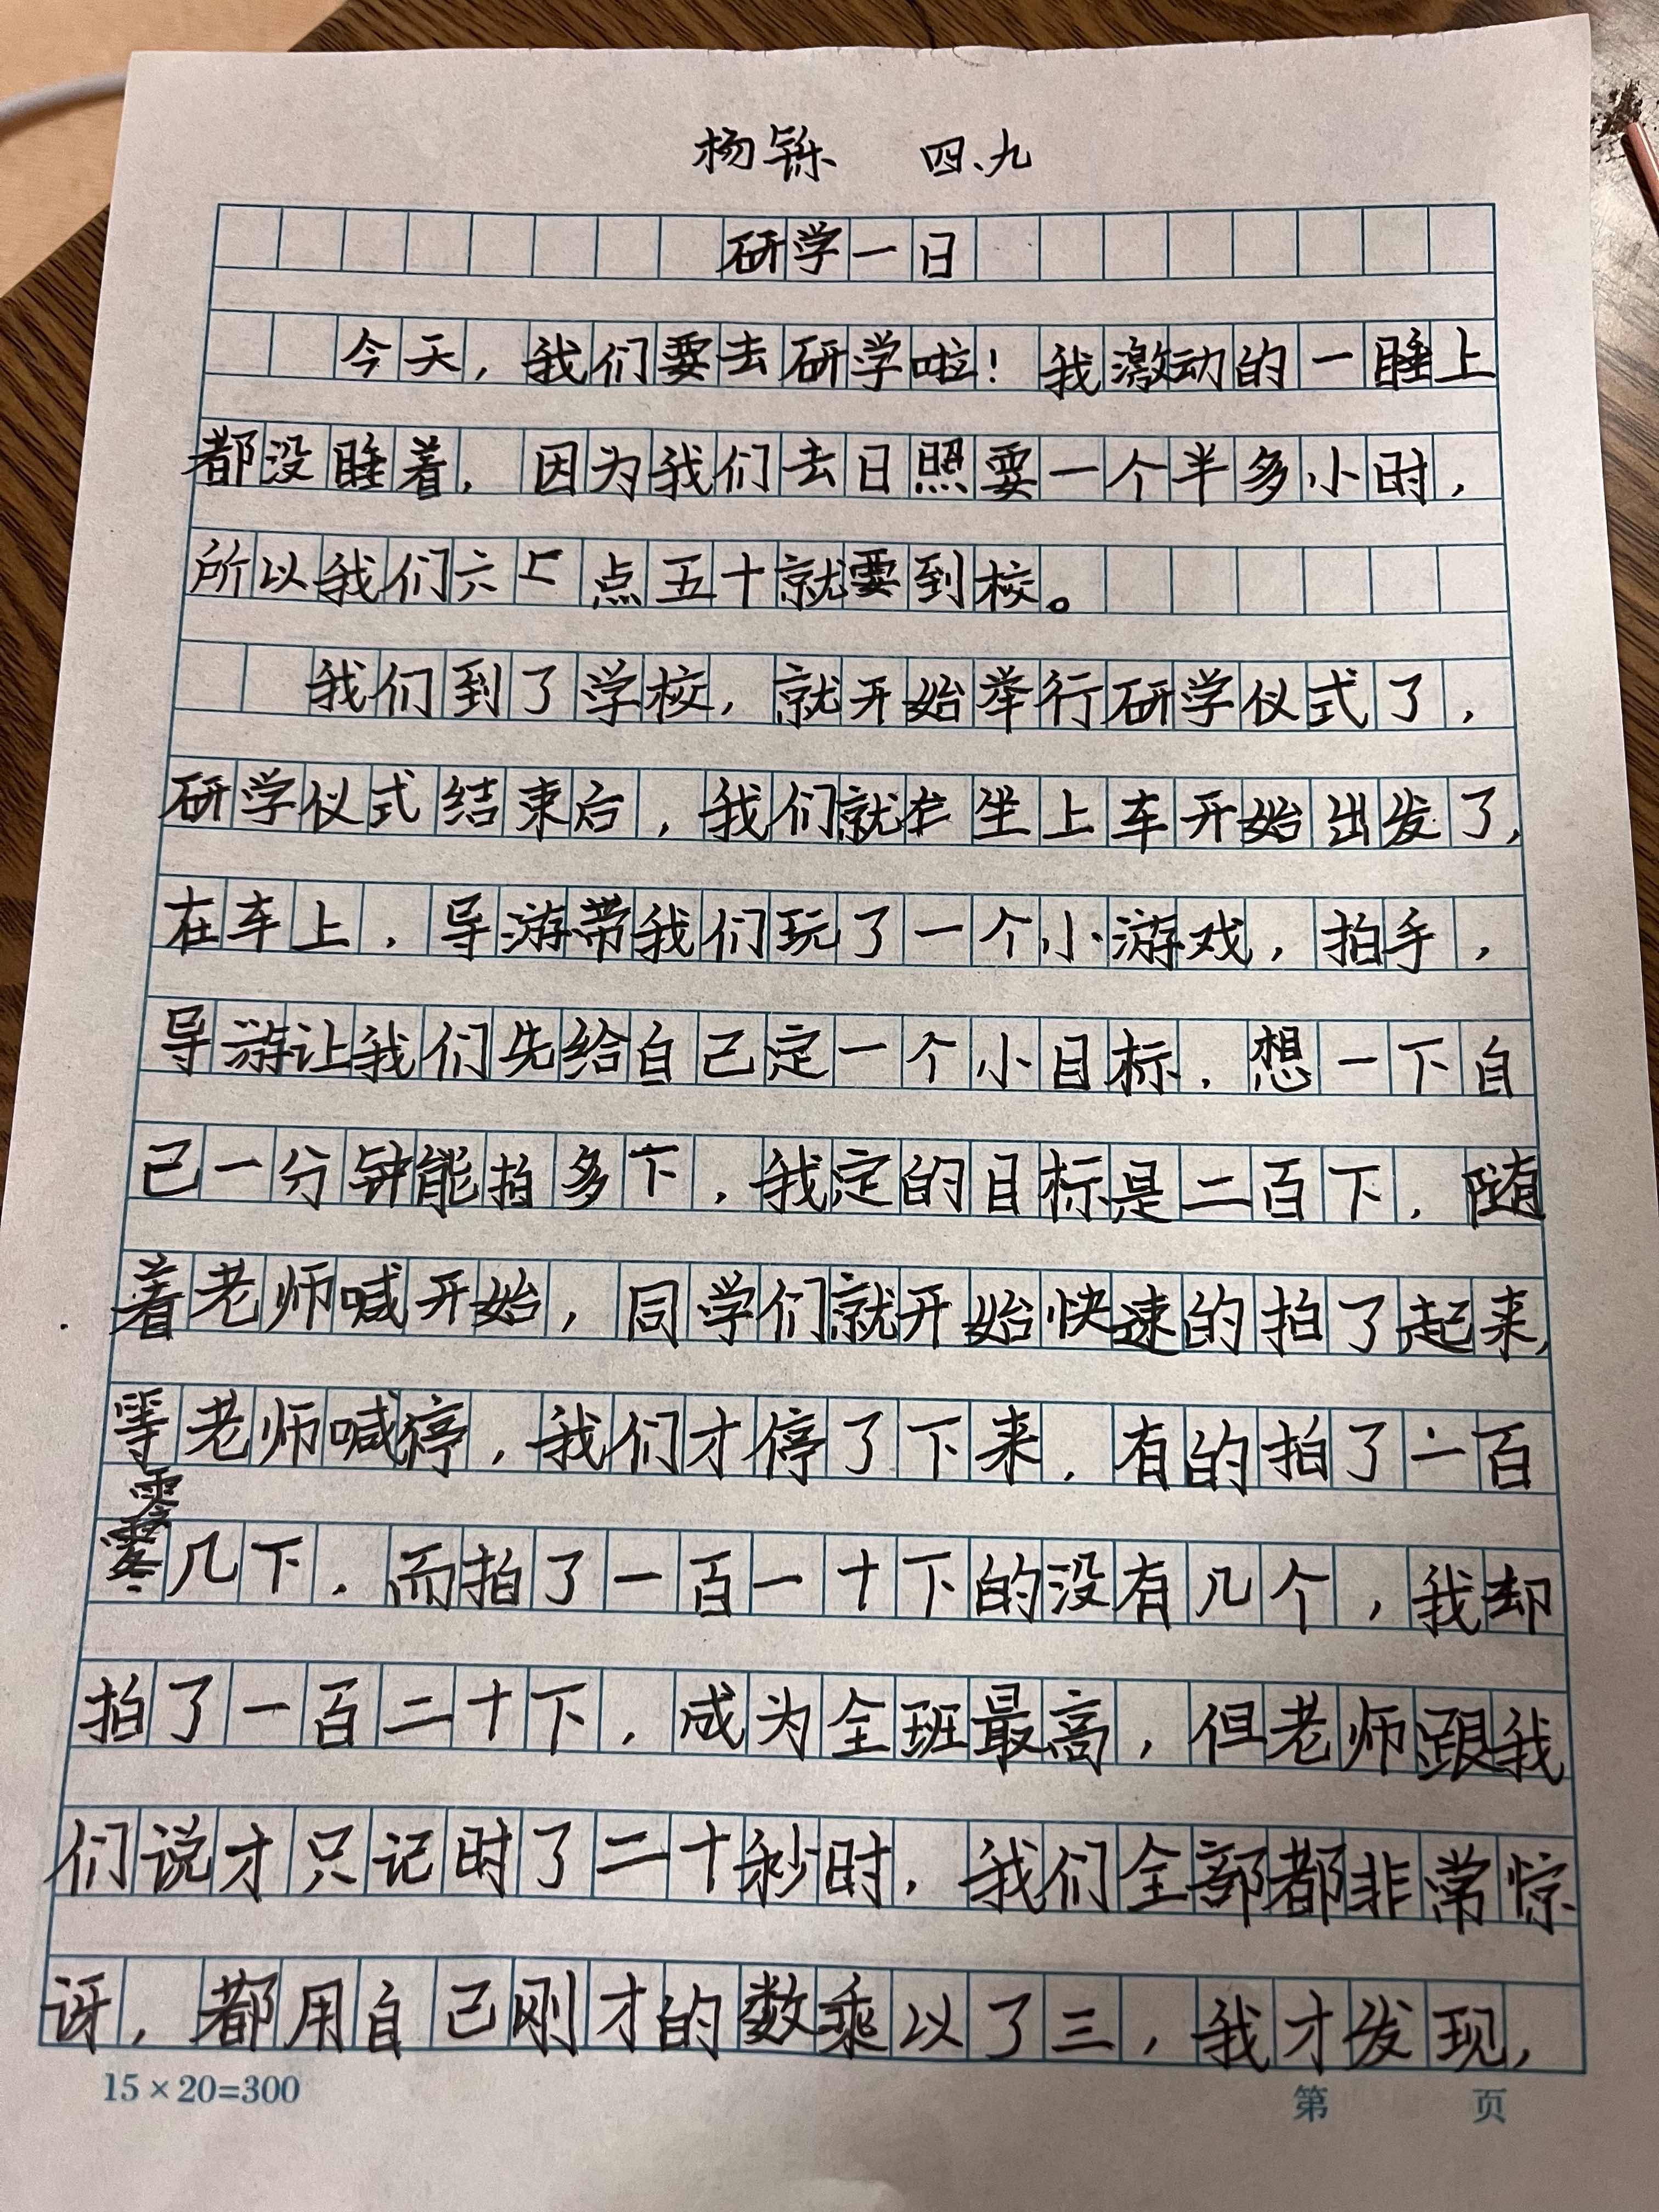 杨铄 四、九
研学一日
今天，我们要去研学啦！我激动的一睡上
都没睡着，因为我们去日照要一个半多小时，
所以我们六点五十就要到校。
我们到了学校，就开始举行研学仪式了，
研学仪式结束后，我们就坐上车开始出发了，
在车上，导游带我们玩了一个小游戏，拍手，
导游让我们先给自己定一个小目标，想一下自
己一分钟能拍多下，我定的目标是二百下，随
着老师喊开始，同学们就开始快速的拍了起来，
等老师喊停，我们才停了下来，有的拍了一百
零几下，而拍了一百一十下的没有几个，我却
拍了一百二十下，成为全班最高，但老师跟我
们说才只记时了二十秒时，我们全部都非常惊
讶，都用自己刚才的数乘以了三，我才发现，
15×20=300 第 页